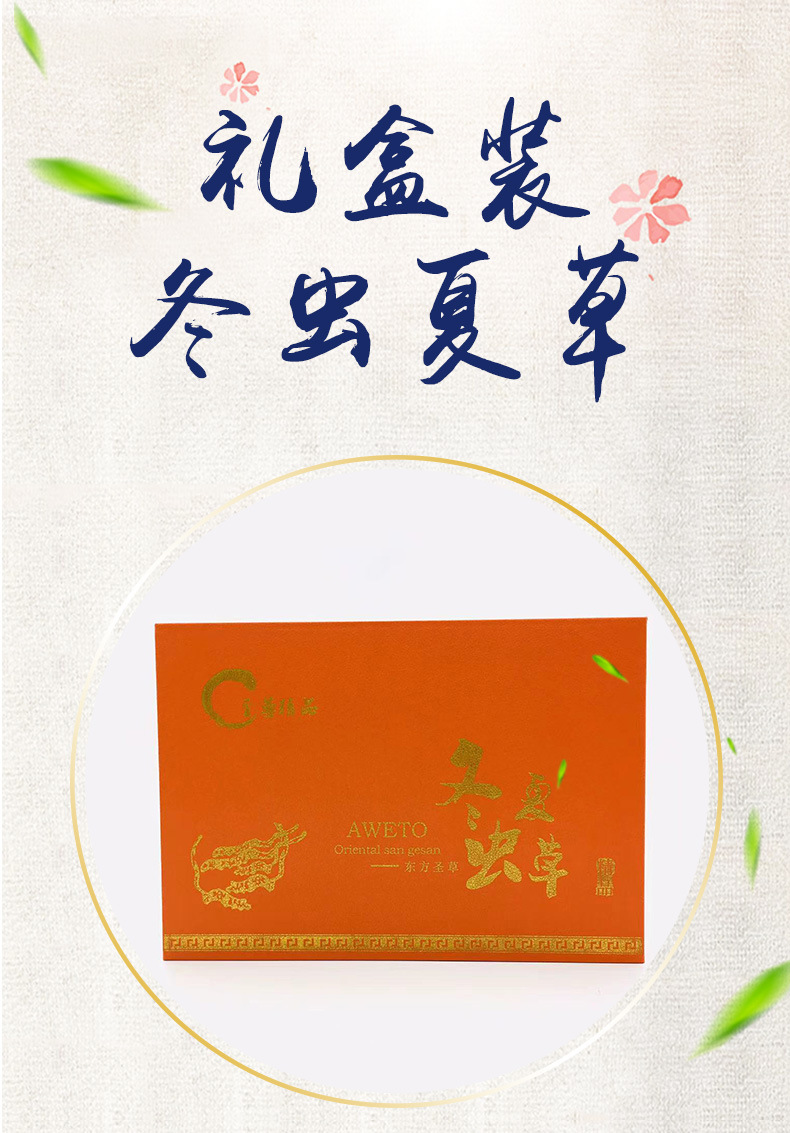 礼盒装
冬虫夏草
冬虫夏草
AWETO
Oriental san gesan
——东方圣草